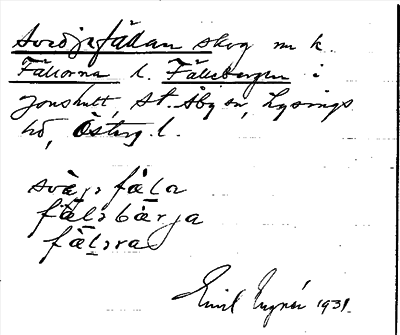 Svedjefällan skog m k.
Fällorna l. Fällebergen i
Jonshult, St. Åby sn, Lysings
hd, Österg. l.
svèjə fæ̀la
fæ̀ləbærja
fæ̀ləra
Emil 1931.